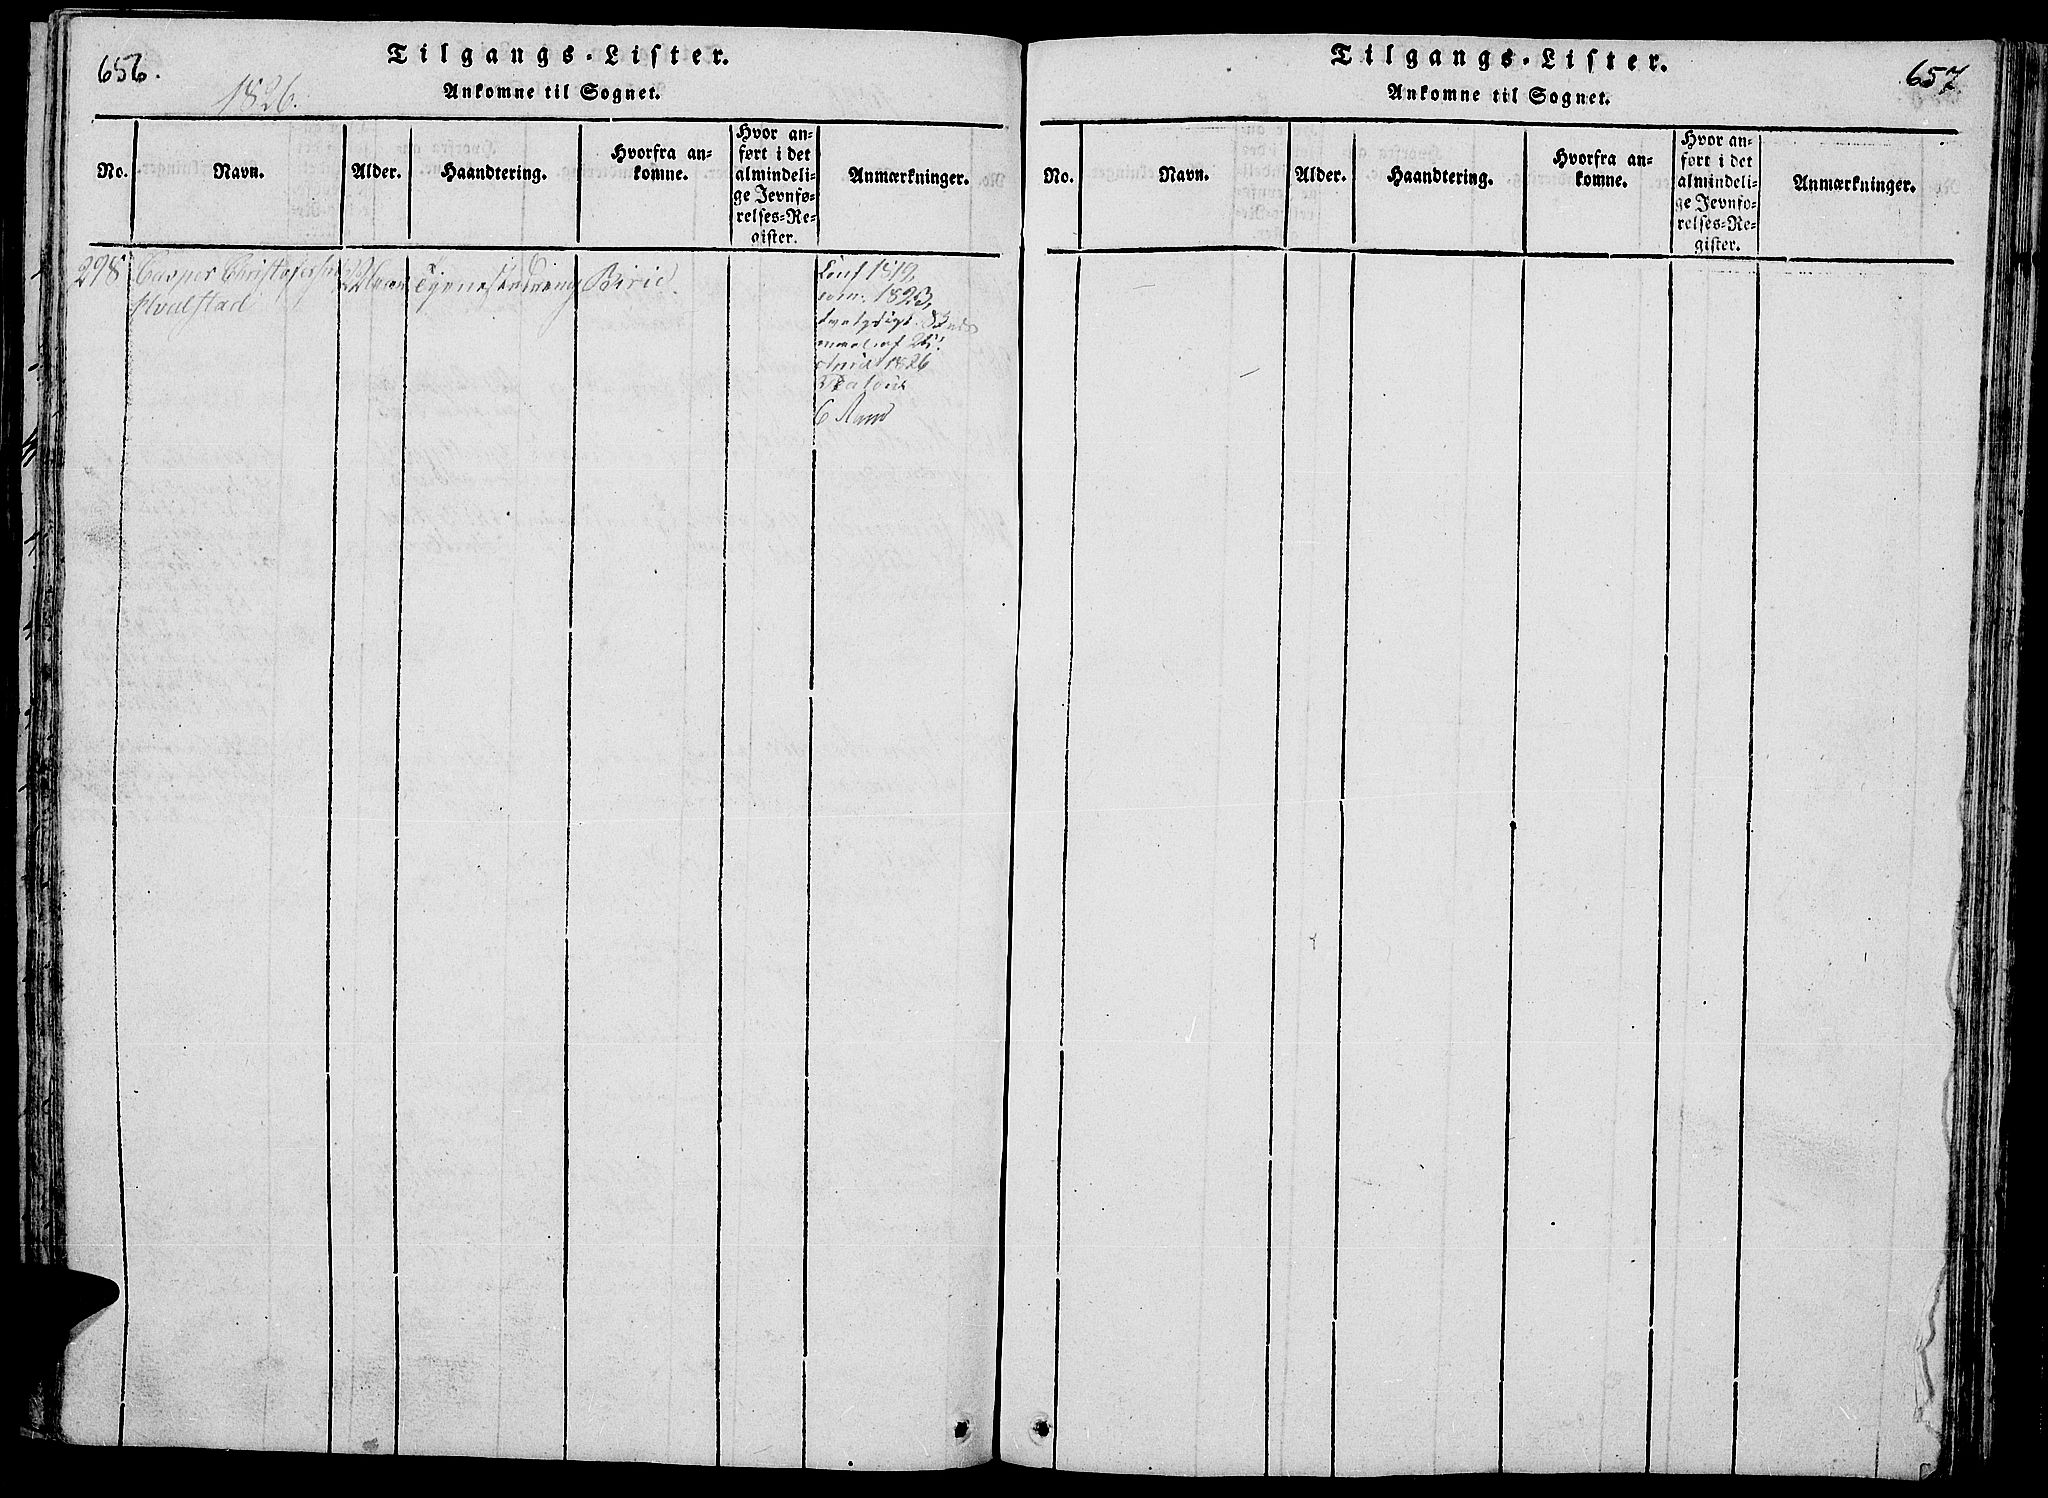 656.
Tilgangs-Lister.
1826.
Ankomne til Sognet.
No.
Navn.
Alder.
Haandtering.
Hvorfra an-
komne.
Hvor an-
ført i det
almindeli-
ge Jevnfø-
relses-Re-
gister.
Anmærkninger.
298 Casper Christofersen 22 Tjenestedreng Birid.
Hvalstad
Conf 1819,
com: 1823,
25
1826
657.
Tilgangs-Lister.
Ankomne til Sognet.
No.
Navn.
Alder.
Haandtering.
Hvorfra an-
komne.
Hvor an-
ført i det
almindeli-
ge Jevnfø-
relses-Re-
gister.
Anmærkninger.